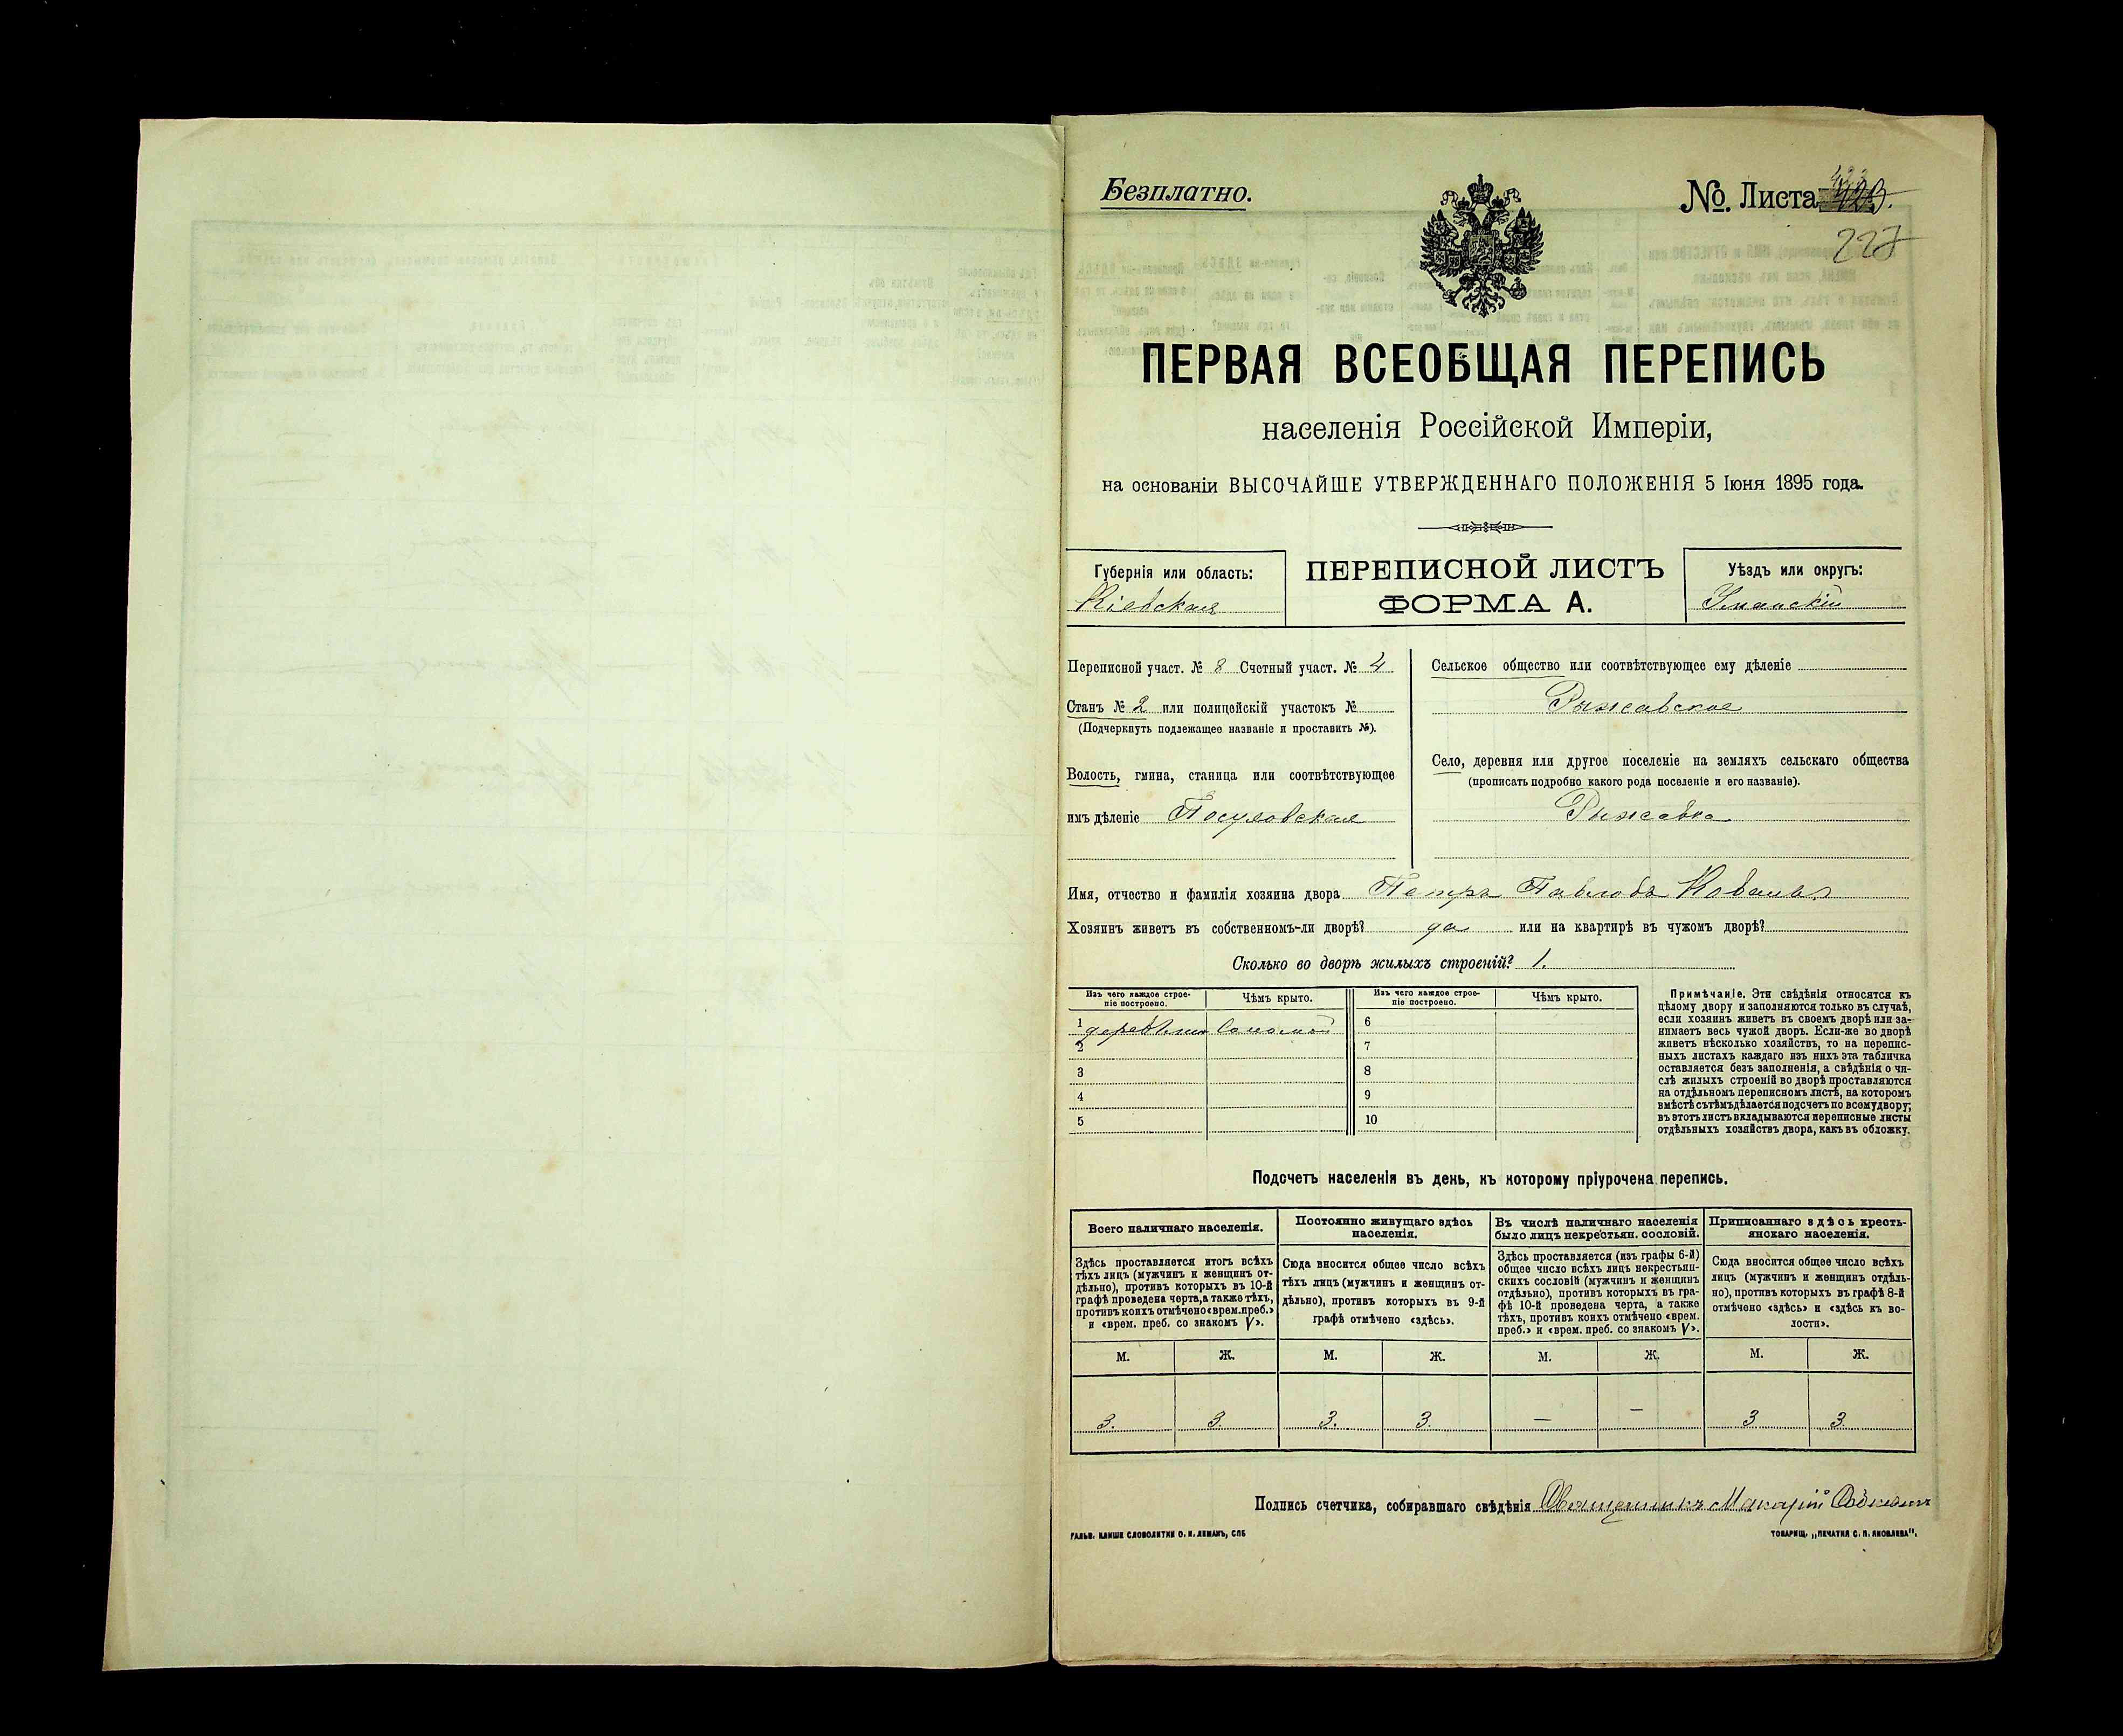 Безплатно.
№ Листа
227
ПЕРВАЯ ВСЕОБЩАЯ ПЕРЕПИСЬ
населенія Россійской Имперіи,
на основаніи ВЫСОЧАЙШЕ УТВЕРЖДЕННАГО ПОЛОЖЕНІЯ 5 Іюня 1895 года.
Губернія или область:
Кіевская
ПЕРЕПИСНОЙ ЛИСТЪ
ФОРМА А.
Уѣздъ или округъ:
Уманскій
Переписной участ. № 8 Счетный участ. № 4
Станъ № 2 или полицейскій участокъ №
(Подчеркнуть подлежащее названіе и проставить №).
Волость, гмина, станица или соотвѣтствующее
имъ дѣленіе
Сельское общество или соотвѣтствующее ему дѣленіе
Рыжавское
Село, деревня или другое поселеніе на земляхъ сельскаго общества
(прописать подробно какого рода поселеніе и его названіе).
Рыжавка
Имя, отчество и фамилія хозяина двора Петръ Павловъ Коваль
Хозяинъ живетъ въ собственномъ-ли дворѣ? да или на квартирѣ въ чужомъ дворѣ?
Сколько во дворѣ жилыхъ строеній? 1.
Изъ чего каждое строе-
ніе построено.
Чѣмъ крыто.
Изъ чего каждое строе-
ніе построено.
Чѣмъ крыто.
1 соломой 6
2 7
3 8
4 9
5 10
Примѣчаніе. Эти свѣдѣнія относятся къ
цѣлому двору и заполняются только въ случаѣ,
если хозяинъ живетъ въ своемъ дворѣ или за-
нимаетъ весь чужой дворъ. Если-же во дворѣ
живетъ нѣсколько хозяйствъ, то на перепис-
ныхъ листахъ каждаго изъ нихъ эта табличка
оставляется безъ заполненія, а свѣдѣнія о чи-
слѣ жилыхъ строеній во дворѣ проставляются
на отдѣльномъ переписномъ листѣ, на которомъ
вмѣстѣ съ тѣмъ дѣлается подсчетъ по всему двору;
въ этотъ листъ вкладываются переписные листы
отдѣльныхъ хозяйствъ двора, какъ въ обложку.
Подсчетъ населенія въ день, къ которому пріурочена перепись.
Всего наличнаго населенія.
Здѣсь проставляется итогъ всѣхъ
тѣхъ лицъ (мужчинъ и женщинъ от-
дѣльно), противъ которыхъ въ 10-й
графѣ проведена черта, а также тѣхъ,
противъ коихъ отмѣчено «врем. преб.»
и «врем. преб. со знакомъ V».
Постоянно живущаго здѣсь
населенія.
Сюда вносится общее число всѣхъ
тѣхъ лицъ (мужчинъ и женщинъ от-
дѣльно), противъ которыхъ въ 9-й
графѣ отмѣчено «здѣсь».
Въ числѣ наличнаго населенія
было лицъ некрестьян. сословій.
Здѣсь проставляется (изъ графы 6-й)
общее число всѣхъ лицъ некрестьян-
скихъ сословій (мужчинъ и женщинъ
отдѣльно), противъ которыхъ въ гра-
фѣ 10-й проведена черта, а также
тѣхъ, противъ коихъ отмѣчено «врем.
преб.» и «врем. преб. со знакомъ V».
Приписаннаго здѣсь кресть-
янскаго населенія.
Сюда вносится общее число всѣхъ
лицъ (мужчинъ и женщинъ отдѣль-
но), противъ которыхъ въ графѣ 8-й
отмѣчено «здѣсь» и «здѣсь къ во-
лости».
М. Ж. М. Ж. М. Ж. М. Ж.
3. 3. 3. 3. — — 3 3.
Подпись счетчика, собиравшаго свѣдѣнія Священникъ Макарій
ГАЛЬВ. КЛИШЕ СЛОВОЛИТНИ О. И. ЛЕМАНЪ, СПБ
ТОВАРИЩ. „ПЕЧАТНЯ С. П. ЯКОВЛЕВА".